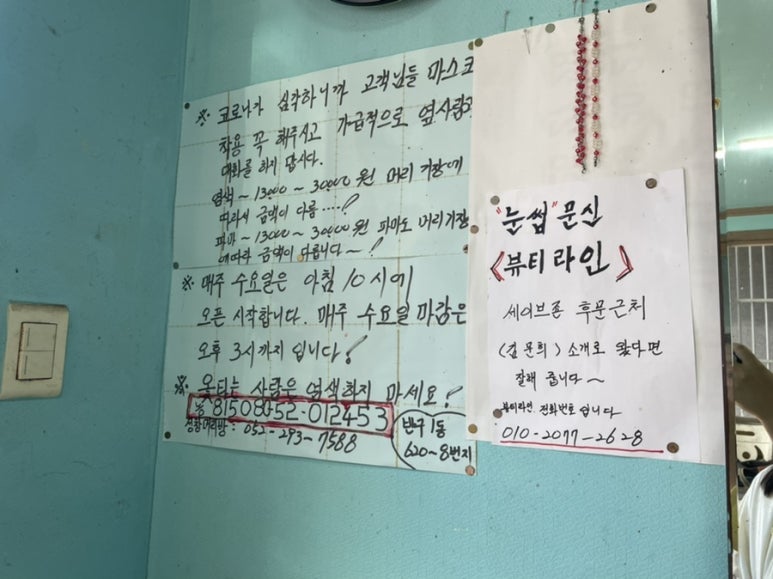 ※ 코로나가 심각하니까 고객님들 마스크
착용 꼭 해주시고 가급적으로 옆사람과
대화를 하지 맙시다.
염색 ~ 13000 ~ 30000 원 머리 기장에
따라서 금액이 다름 ····!
파마 ~ 13000 ~ 30000 원 파마도 머리기장
에따라 금액이 다릅니다 ~ !
※ 매주 수요일은 아침 10시에
오픈 시작합니다. 매주 수요일 마감은
오후 3시까지 입니다!
※ 옻타는 사람은 염색하지 마세요!
농 815088-52-012453
머리방 : 052-293-7588
반구1동
620~8번지
"눈썹" 문신
<뷰티라인>
세이브존 후문근처
(김문희) 소개로 왔다면
잘해 줍니다 ~
뷰티라인 전화번호 입니다
010-2077-2628